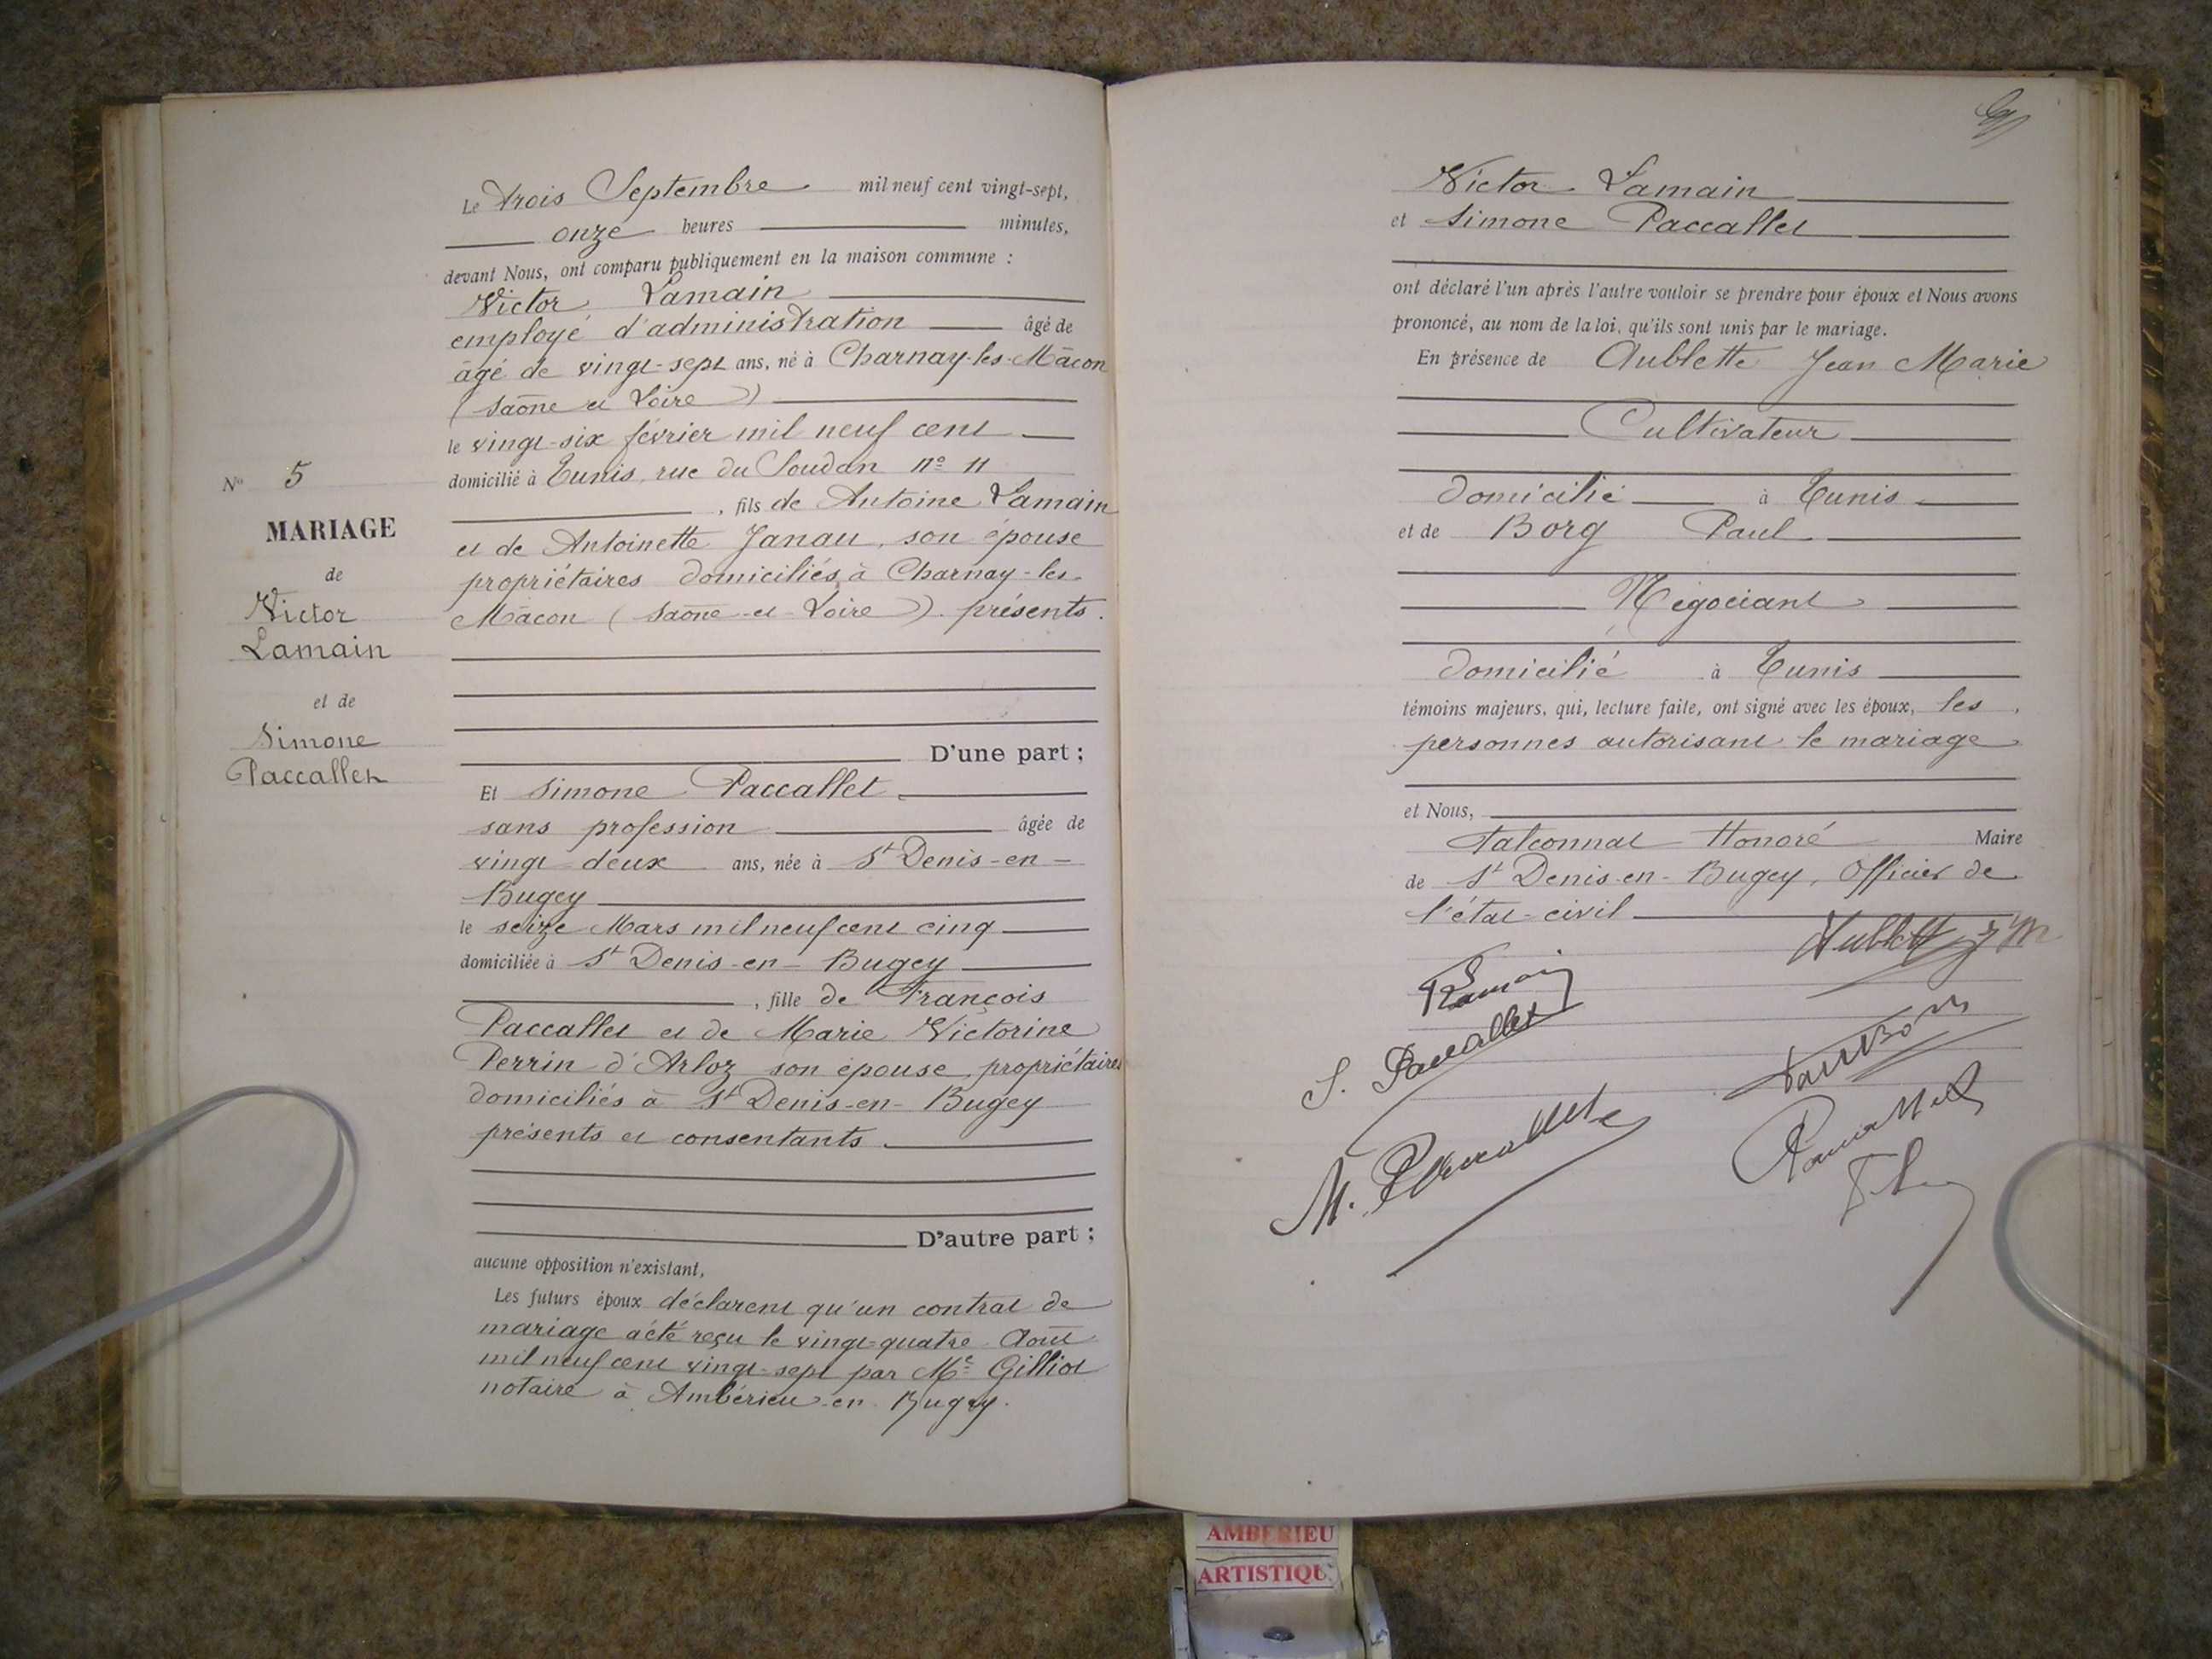 Le trois Septembre mil neuf cent vingt-sept,
onze heures minutes,
devant Nous, ont comparu publiquement en la maison commune :
Victor Lamain
employé d'administration âgé de
âgé de vingt-sept ans, né à Charnay-les-Mâcon
(Saône et Loire)
le vingt-six février mil neuf cent
domicilié à Tunis, rue du Soudan n° 11
, fils de Antoine Lamain
et de Antoinette Janau, son épouse
propriétaires domiciliés à Charnay-les-
Mâcon (Saône-et-Loire) présents.
D'une part ;
N° 5
MARIAGE
de
Victor
Lamain
et de
Simone
Paccallet
Et Simone Paccallet
sans profession âgée de
vingt-deux ans, née à St Denis-en-
Bugey
le seize Mars mil neuf cent cinq
domiciliée à St Denis-en-Bugey
, fille de François
Paccallet et de Marie Victorine
Perrin d'Arloz son épouse, propriétaires
domiciliés à St Denis-en-Bugey
présents et consentants.
D'autre part ;
aucune opposition n'existant,
Les futurs époux déclarent qu'un contrat de
mariage a été reçu le vingt-quatre Août
mil neuf cent vingt-sept par Me Gilliot
notaire à Ambérieu-en-Bugey.
Victor Lamain
et Simone Paccallet
ont déclaré l'un après l'autre vouloir se prendre pour époux et Nous avons
prononcé, au nom de la loi, qu'ils sont unis par le mariage.
En présence de Aublette Jean Marie
Cultivateur
domicilié à Tunis
et de Borg Paul
Négociant
domicilié à Tunis
témoins majeurs, qui, lecture faite, ont signé avec les époux, les
personnes autorisant le mariage
et Nous,
Falconnat Honoré Maire
de St Denis-en-Bugey, Officier de
l'état-civil
Aublette J M
Lamain
S. Paccallet
M. Paccallet
AMBERIEU
ARTISTIQU